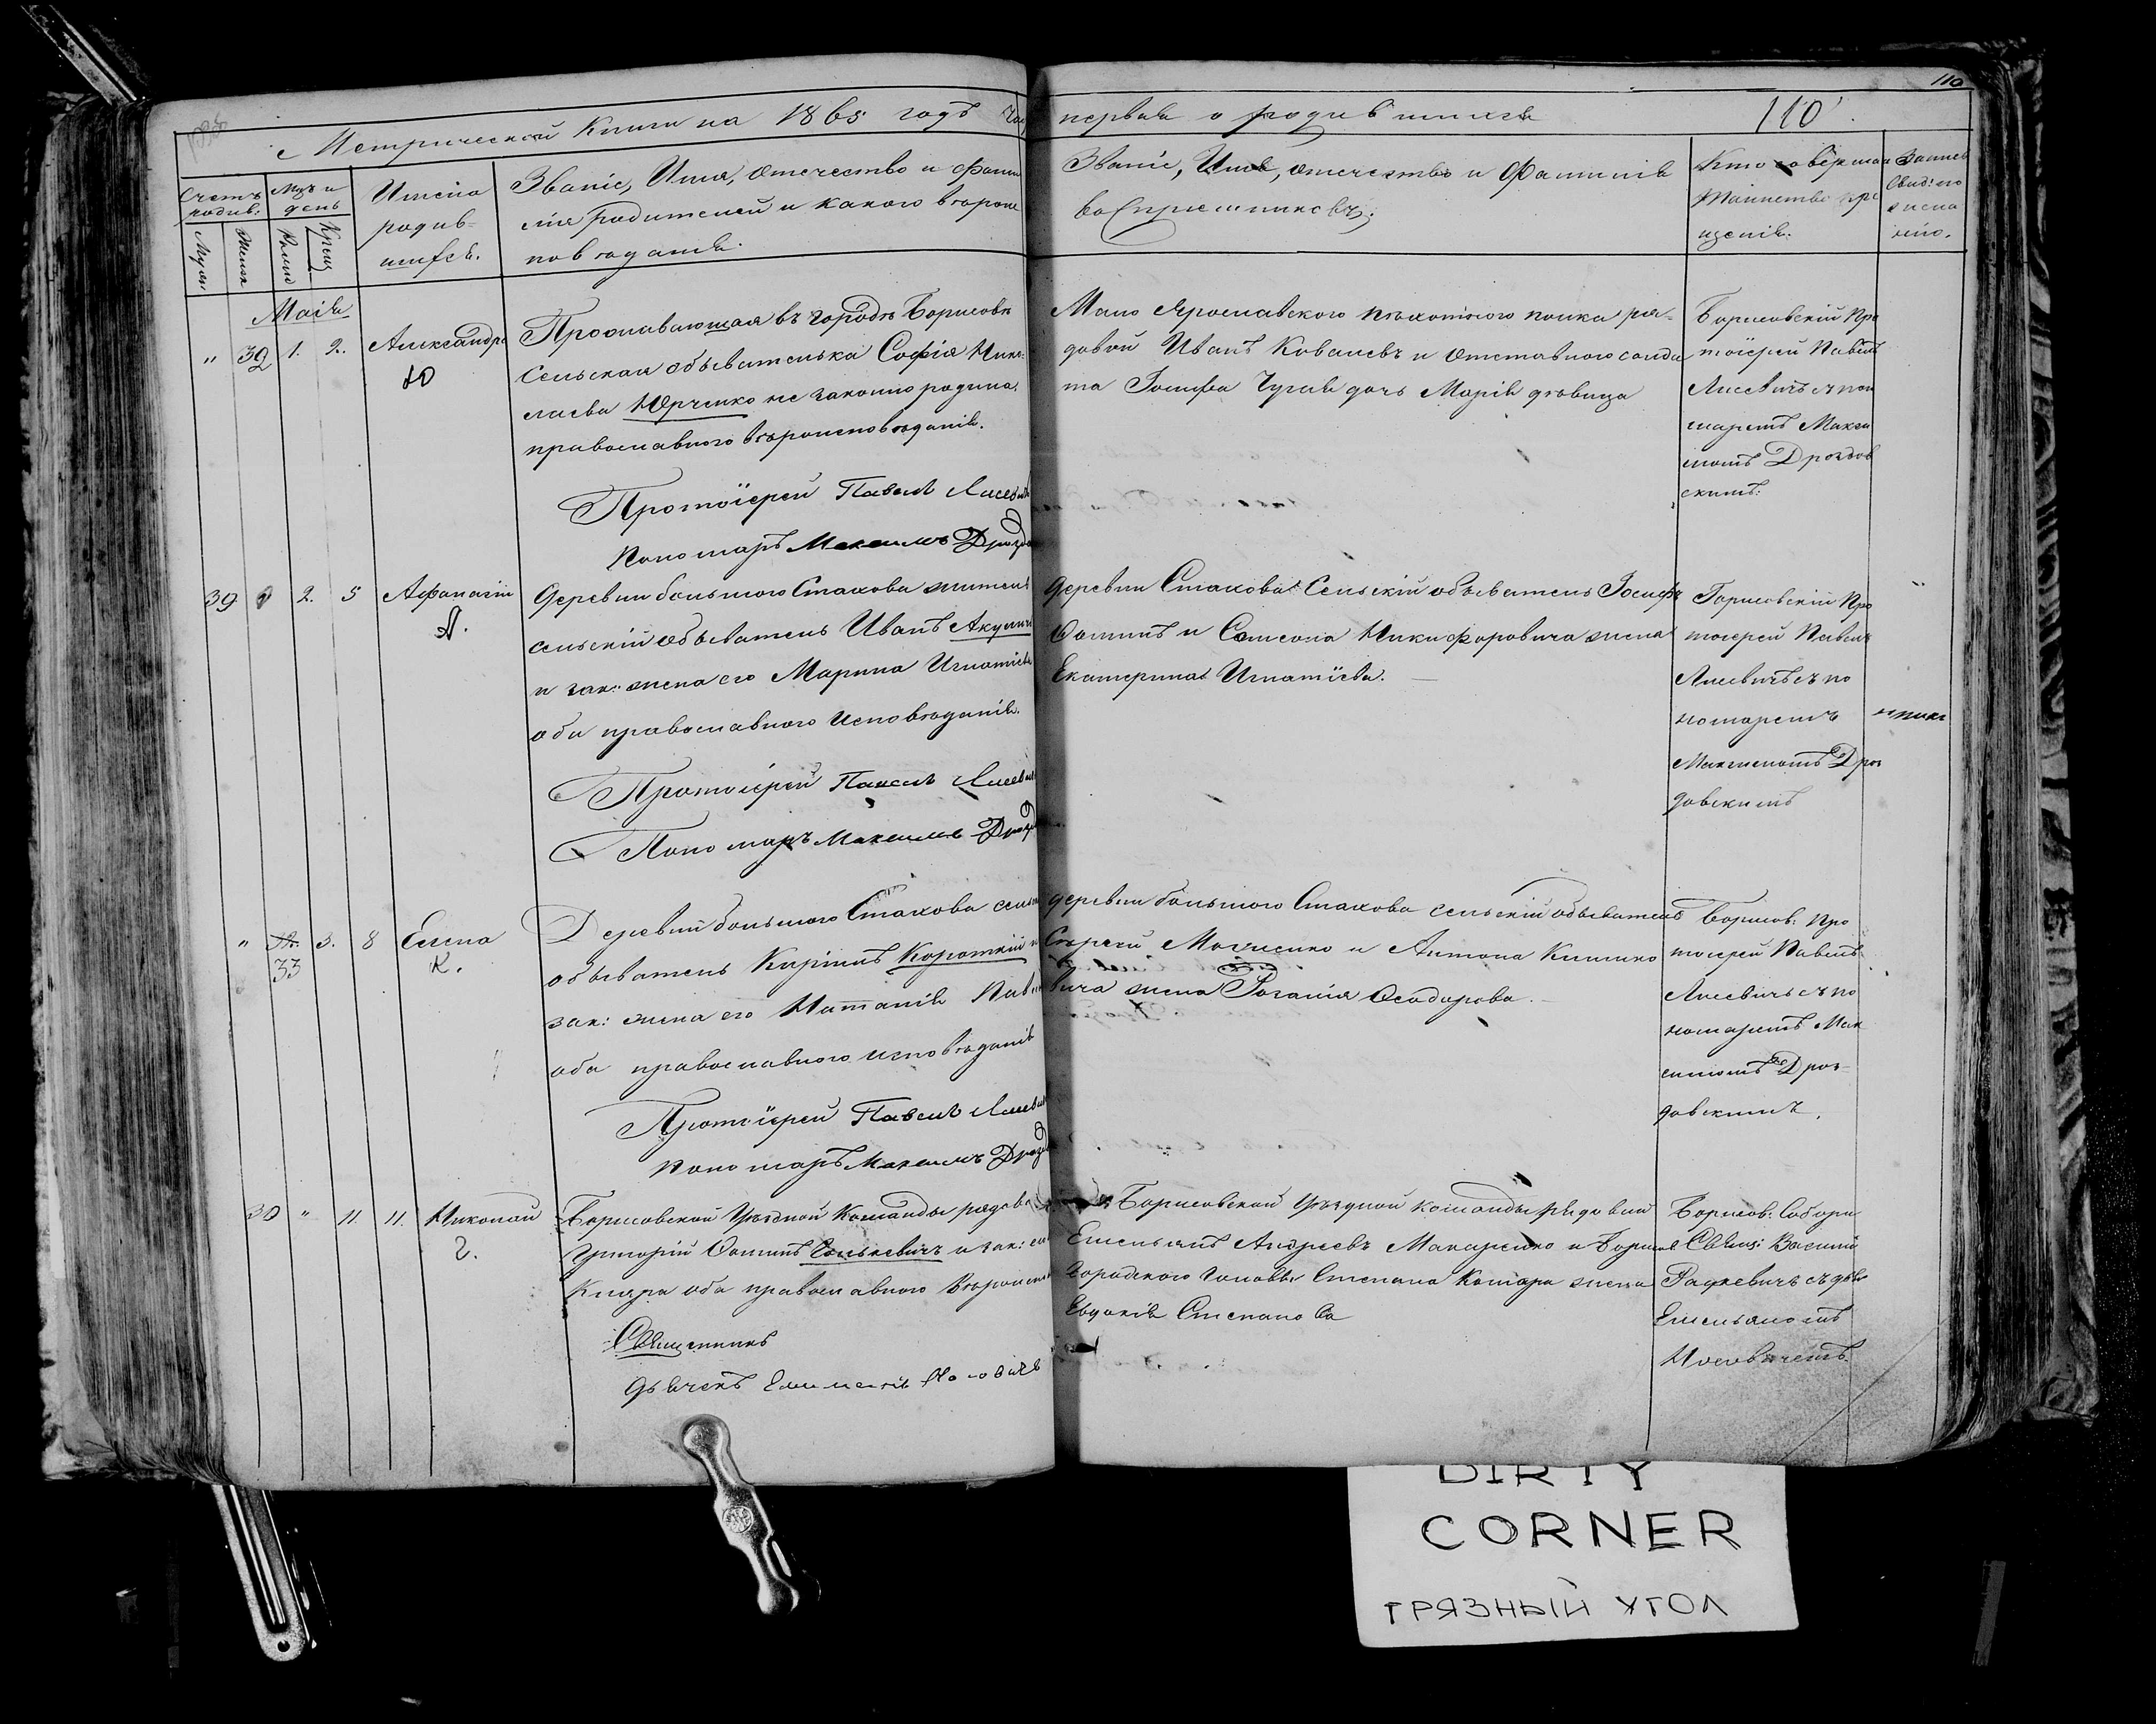 110
Метрической Книги на 1865 годъ Час
первая о родившихся
110
Счетъ родив:
Муж
Женск
Мцъ и день
Рожд
Крещ
Имена родив-
шихся.
Званіе, Имя, отечество и Фами
лія родителей и какого вѣроис
повѣданія.
Званіе, Имя, отечество и Фамилія
воспріемниковъ.
Кто совершал
Таинство кре
щенія.
Мая
" 32 1. 2. Александра
Ю
Проживающая въ городѣ Борисовѣ
сельская обывателька Софія Нико-
лаева Юрченко не законно родила.
православного вѣроисповѣданія.
Протоіерей Павелъ Лисевичъ
Пономарь Максимъ Дрозд
Мало Ярославского пѣхотного полка ря-
довой Иванъ Ковалевъ и отставного солда
та Іосифа дочь Марія дѣвица
Борисовскій Про
тоіерей Павелъ
Лисевичъ съ поно
маремъ Макси
момъ Дроздов
скимъ.
39 2. 5 Афанасій
А.
Деревни большого Стахова житель
сельскій обыватель Иванъ Акулич
и зак: жена его Марина Игнатіева
оба православного исповѣданія.
Протоіерей Павелъ Лисевичъ
Пономарь Максимъ Дрозд
Деревни Стахова Сельскій обыватель Іосифъ
Фоминъ и Самсона Никифоровича жена
Екатерина Игнатіева.
Борисовскій Про
тоіерей Павелъ
Лисевичъ съ по
номаремъ
Максимомъ Дроз
довскимъ
" 32. 33 3. 8 Елена
К.
Деревни большого Стахова сельск
обыватель Кирилъ Короткій и
зак: жена его Наталія Павл
оба православного исповѣданія
Протоіерей Павелъ Лисевич
Пономарь Максимъ Дрозд
деревни большого Стахова сельскій обыватель
Сергѣй и Антона Климко
вича жена Феодорова.
Борисов: Про
тоіерей Павелъ
Лисевичъ съ по
номаремъ Мак
симомъ Дроз-
довскимъ.
30 " 11. 11. Николай
Г.
Борисовской Уѣздной Команды рядово
Григорій Фоминъ Голькевичъ и зак: его
Клара оба православного Вѣроисп
Священникъ
Дьячекъ
Борисовской Уѣздной команды рядовой
Емельянъ Андреевъ Макаренко и Борисов
Городского головы Степана жена
Евдокія Степанова
Борисов: Собора
Свящ: Василій
Радкевичъ съ дьяч
Емельяномъ
DIRTY
CORNER
ГРЯЗНЫЙ УГОЛ